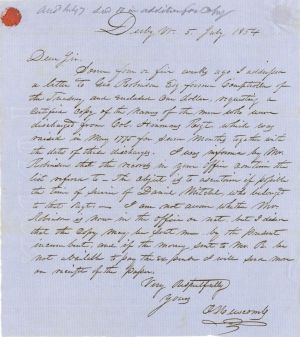 Derby Vt. 5 July 1854
Dear Sir
Some four or five weeks ago I addressed
a letter to Geo Robinson Esq former Comptroller of
the Treasury, and enclosed One dollar, requesting a
certified Copy of the Names of the men who were
discharged from Col. Regt. which was
raised in May 1775 for seven Months together with
the dates of their discharges. I was informed by Mr
Robinson that the records in your office contain the
list referred to - The object is to ascertain if possible
the time of service of Daniel Mitchel who belonged
to that Regt. - I am not aware whether Mr
Robinson is now in the office or not, but I desire
that the Copy may be sent me by the present
incumbent, and if the money sent to Mr R. be
not available to pay the expense I will send more
on receipt of the paper.
Very Respectfully
Yours
Newcomb